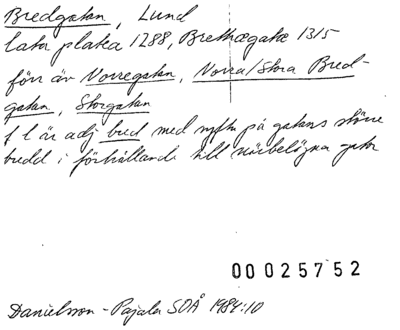 Bredgatan, Lund
lata platea 1288, Brethægatæ 1315
förr äv Norregatan, Norra/Stora Bred-
gatan, Storgatan
f l är adj bred med syftn på gatans större
bredd i förhållande till närbelägna gator
00025752
Danielsson-Pajala SOÅ 1984:10